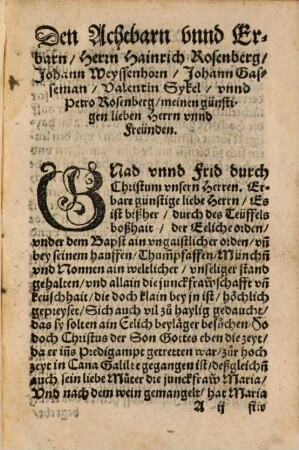 Den Achtbarn vnnd Er-
barn / Herrn Hainrich Rosenberg /
Johann Weyssenhorn / Johann Gas-
seman / Valentin Sykel / vnnd
Petro Rosenberg / meinen günsti-
gen lieben Herrn vnnd
Freünden.
GNad vnnd Frid durch
Christum vnsern Herren, Er-
bare günstige liebe Herrn / Es
ist bißher / durch des Teüffels
boßhait / der Eeliche orden /
vnder dem Bapst ain vngaistlicher orden / vñ
bey seinem hauffen / Thumpfaffen / Münchñ
vnd Nonnen ain weltlicher / vnseliger stand
gehalten / vnd allain die junckfrawschafft vñ
keuschhait / die doch klain bey jn ist / höchlich
gepreyset / Sich auch vil zů haylig gedaucht /
das sy solten ain Eelich beyläger besůchen / So
doch Christus der Son Gottes eben die zeyt /
da er inns Predigampt getretten war / zůr hoch
zeyt in Cana Galilee gegangen ist / deßgleichñ
auch sein liebe Můter die junckfraw Maria /
Vnd nach dem wein gemangelt / hat Maria
A ij